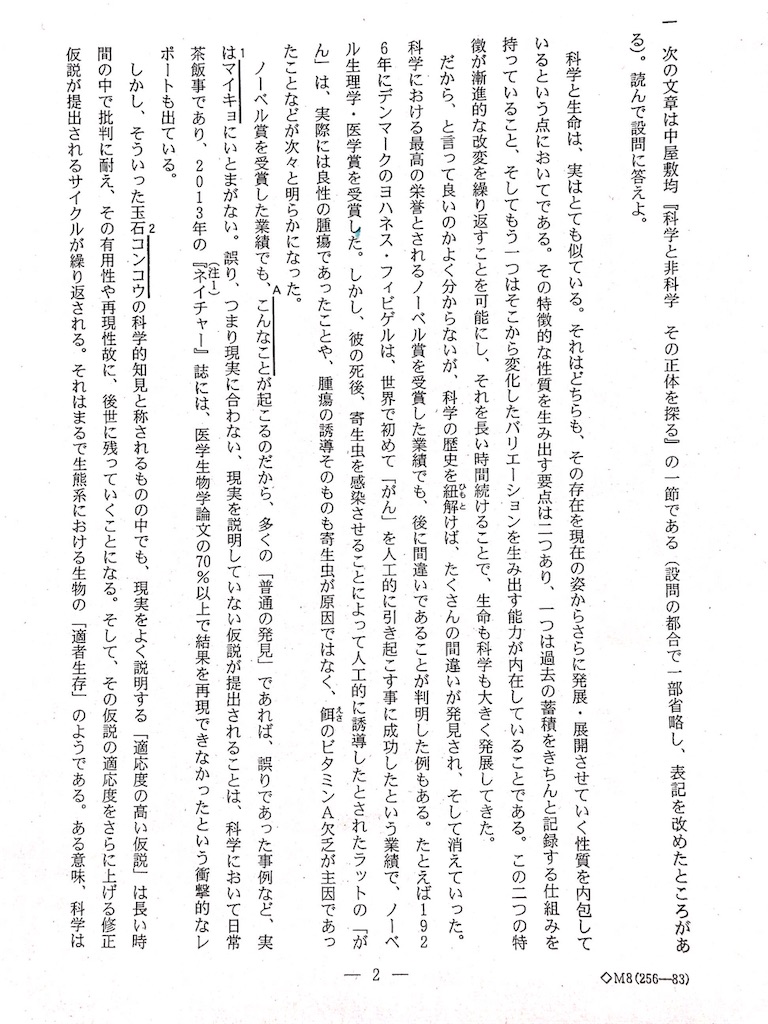 一　次の文章は中屋敷均『科学と非科学　その正体を探る』の一節である（設問の都合で一部省略し、表記を改めたところがあ
る）。読んで設問に答えよ。
科学と生命は、実はとても似ている。それはどちらも、その存在を現在の姿からさらに発展・展開させていく性質を内包して
いるという点においてである。その特徴的な性質を生み出す要点は二つあり、一つは過去の蓄積をきちんと記録する仕組みを
持っていること、そしてもう一つはそこから変化したバリエーションを生み出す能力が内在していることである。この二つの特
徴が漸進的な改変を繰り返すことを可能にし、それを長い時間続けることで、生命も科学も大きく発展してきた。
だから、と言って良いのかよく分からないが、科学の歴史を紐解けば、たくさんの間違いが発見され、そして消えていった。
ひもと
科学における最高の栄誉とされるノーベル賞を受賞した業績でも、後に間違いであることが判明した例もある。たとえば192
6年にデンマークのヨハネス・フィビゲルは、世界で初めて「がん」を人工的に引き起こす事に成功したという業績で、ノーベ
ル生理学・医学賞を受賞した。しかし、彼の死後、寄生虫を感染させることによって人工的に誘導したとされたラットの「が
ん」は、実際には良性の腫瘍であったことや、腫瘍の誘導そのものも寄生虫が原因ではなく、餌のビタミンA欠乏が主因であっ
えさ
たことなどが次々と明らかになった。
ノーベル賞を受賞した業績でも、こんなことが起こるのだから、多くの「普通の発見」であれば、誤りであった事例など、実
A
はマイキョにいとまがない。誤り、つまり現実に合わない、現実を説明していない仮説が提出されることは、科学において日常
1
茶飯事であり、2013年の『ネイチャー』誌には、医学生物学論文の70％以上で結果を再現できなかったという衝撃的なレ
（注1）
ポートも出ている。
しかし、そういった玉石コンコウの科学的知見と称されるものの中でも、現実をよく説明する「適応度の高い仮説」は長い時
2
間の中で批判に耐え、その有用性や再現性故に、後世に残っていくことになる。そして、その仮説の適応度をさらに上げる修正
仮説が提出されるサイクルが繰り返される。それはまるで生態系における生物の「適者生存」のようである。ある意味、科学は
— 2 —
◇M8(256—83)